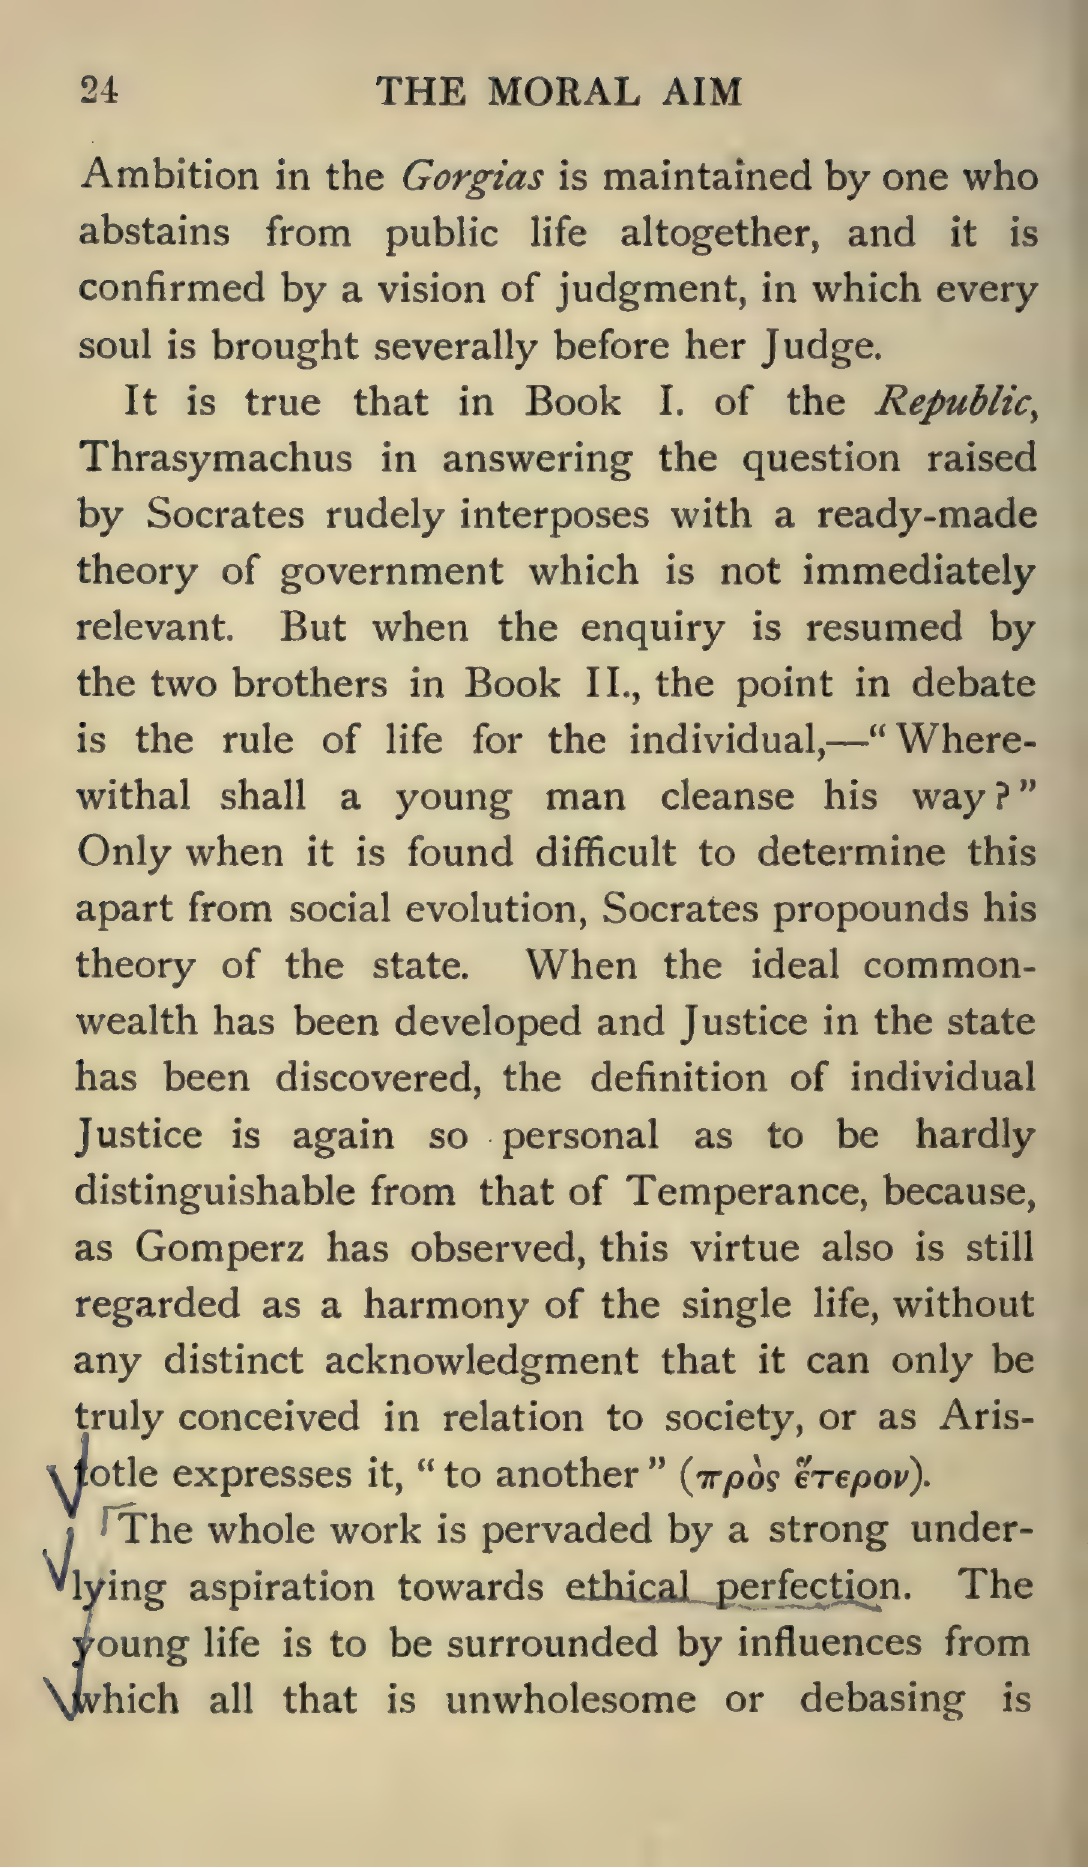 24 THE MORAL AIM
Ambition in the Gorgias is maintained by one who
abstains from public life altogether, and it is
confirmed by a vision of judgment, in which every
soul is brought severally before her Judge.
It is true that in Book I. of the Republic,
Thrasymachus in answering the question raised
by Socrates rudely interposes with a ready-made
theory of government which is not immediately
relevant. But when the enquiry is resumed by
the two brothers in Book II., the point in debate
is the rule of life for the individual,—“Where-
withal shall a young man cleanse his way?”
Only when it is found difficult to determine this
apart from social evolution, Socrates propounds his
theory of the state. When the ideal common-
wealth has been developed and Justice in the state
has been discovered, the definition of individual
Justice is again so personal as to be hardly
distinguishable from that of Temperance, because,
as Gomperz has observed, this virtue also is still
regarded as a harmony of the single life, without
any distinct acknowledgment that it can only be
truly conceived in relation to society, or as Aris-
totle expresses it, “to another” (πρὸς ἕτερον).
The whole work is pervaded by a strong under-
lying aspiration towards ethical perfection. The
young life is to be surrounded by influences from
which all that is unwholesome or debasing is